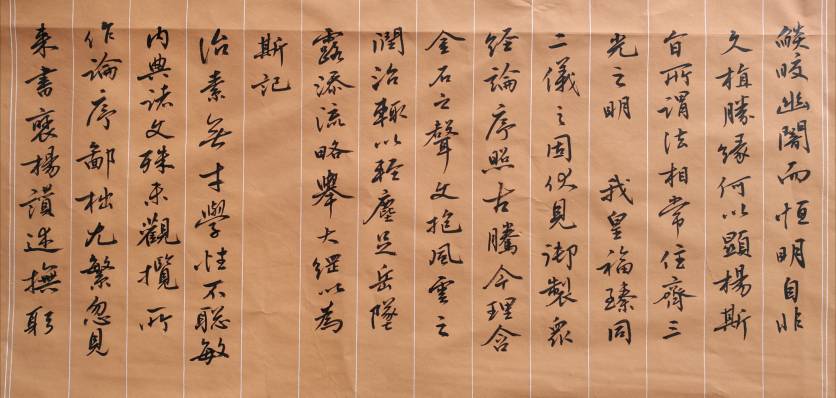 燄皎幽闇而恒明自非
久植勝緣何以顯楊斯
旨所謂法相常住齊三
光之明 我皇福臻同
二儀之固伏見御製眾
經論序照古騰今理含
金石之聲文抱風雲之
潤治輒以輕塵足岳墜
露添流略舉大綱以為
斯記
治素無才學性不聰敏
內典諸文殊未觀攬所
作論序鄙拙尤繁忽見
來書褒揚讚述撫躬